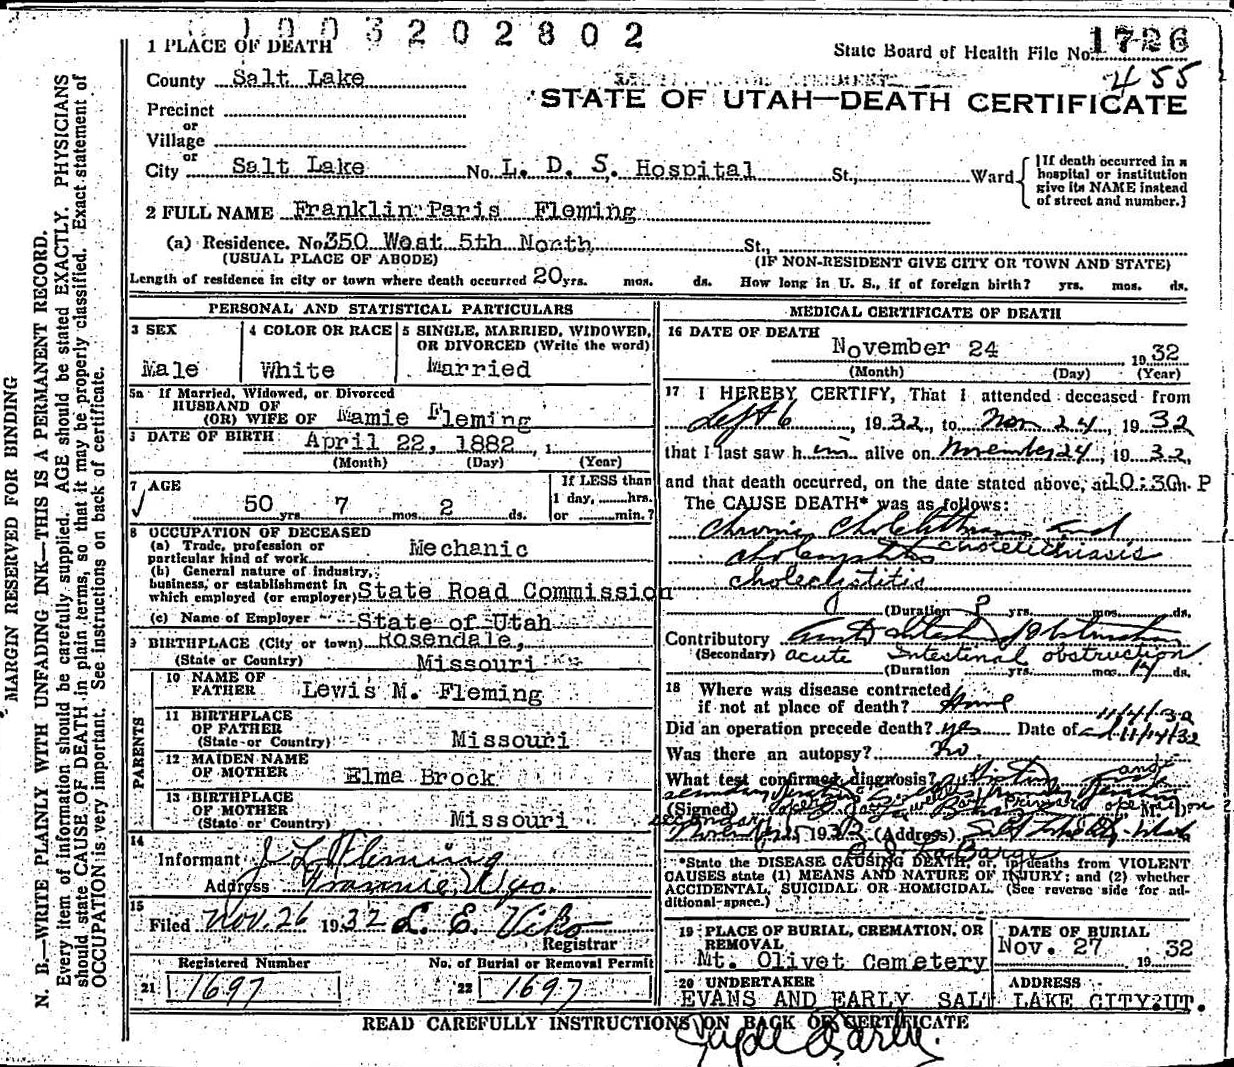 1003202802
1 PLACE OF DEATH
State Board of Health File No. 1726
455
County Salt Lake
STATE OF UTAH—DEATH CERTIFICATE
Precinct
or
Village
or
City Salt Lake No. L. D. S. Hospital St., Ward
{If death occurred in a
hospital or institution
give its NAME instead
of street and number.}
2 FULL NAME Franklin Paris Fleming
(a) Residence. No. 350 West 5th North St.,
(USUAL PLACE OF ABODE) (IF NON-RESIDENT GIVE CITY OR TOWN AND STATE)
Length of residence in city or town where death occurred 20 yrs. mos. ds. How long in U. S., if of foreign birth? yrs. mos. ds.
PERSONAL AND STATISTICAL PARTICULARS
3 SEX 4 COLOR OR RACE 5 SINGLE, MARRIED, WIDOWED,
OR DIVORCED (Write the word)
Male White Married
5a If Married, Widowed, or Divorced
HUSBAND OF
(OR) WIFE OF Mamie Fleming
DATE OF BIRTH April 22, 1882, 1
(Month) (Day) (Year)
7 AGE If LESS than
1 day, hrs.
50 yrs 7 mos. 2 ds. or min.?
8 OCCUPATION OF DECEASED
(a) Trade, profession or
particular kind of work Mechanic
(b) General nature of industry,
business, or establishment in
which employed (or employer) State Road Commission
(c) Name of Employer State of Utah
9 BIRTHPLACE (City or town) Rosendale,
(State or Country) Missouri
PARENTS
10 NAME OF
FATHER Lewis M. Fleming
11 BIRTHPLACE
OF FATHER
(State or Country) Missouri
12 MAIDEN NAME
OF MOTHER Elma Brock
13 BIRTHPLACE
OF MOTHER
(State or Country) Missouri
14
Informant J L Fleming
Address Frannie, Wyo.
15
Filed Nov. 26 1932 L. E. Viko
Registrar
Registered Number No. of Burial or Removal Permit
21 1697 22 1697
MEDICAL CERTIFICATE OF DEATH
16 DATE OF DEATH
November 24 1932
(Month) (Day) (Year)
17 I HEREBY CERTIFY, That I attended deceased from
Sept 6, 1932, to Nov 24, 1932
that I last saw him alive on November 24, 1932,
and that death occurred, on the date stated above, at 10:30 m. P
The CAUSE DEATH* was as follows:
Chronic Cholelithiasis and
cholelithiasis
cholecystitis
(Duration) ? yrs. mos. ds.
Contributory Acute Intestinal Obstruction
(Secondary) acute Intestinal obstruction
(Duration yrs. mos. ds.
18 Where was disease contracted
if not at place of death? Home
11/4/32
Did an operation precede death? yes Date of 11/14/32
Was there an autopsy? No
What test confirmed diagnosis? and
(Signed) M. D.
1932 (Address) Salt Lake City-Utah
LaBarge
*State the DISEASE CAUSING DEATH, or, in deaths from VIOLENT
CAUSES state (1) MEANS AND NATURE OF INJURY; and (2) whether
ACCIDENTAL, SUICIDAL OR HOMICIDAL. (See reverse side for ad-
ditional space.)
19 PLACE OF BURIAL, CREMATION, OR
REMOVAL
Mt. Olivet Cemetery
DATE OF BURIAL
Nov. 27 1932
20 UNDERTAKER ADDRESS
EVANS AND EARLY SALT LAKE CITY, UT.
READ CAREFULLY INSTRUCTIONS ON BACK OF CERTIFICATE
MARGIN RESERVED FOR BINDING
N. B.—WRITE PLAINLY WITH UNFADING INK—THIS IS A PERMANENT RECORD.
Every item of information should be carefully supplied. AGE should be stated EXACTLY. PHYSICIANS
should state CAUSE OF DEATH in plain terms, so that it may be properly classified. Exact statement of
OCCUPATION is very important. See instructions on back of certificate.